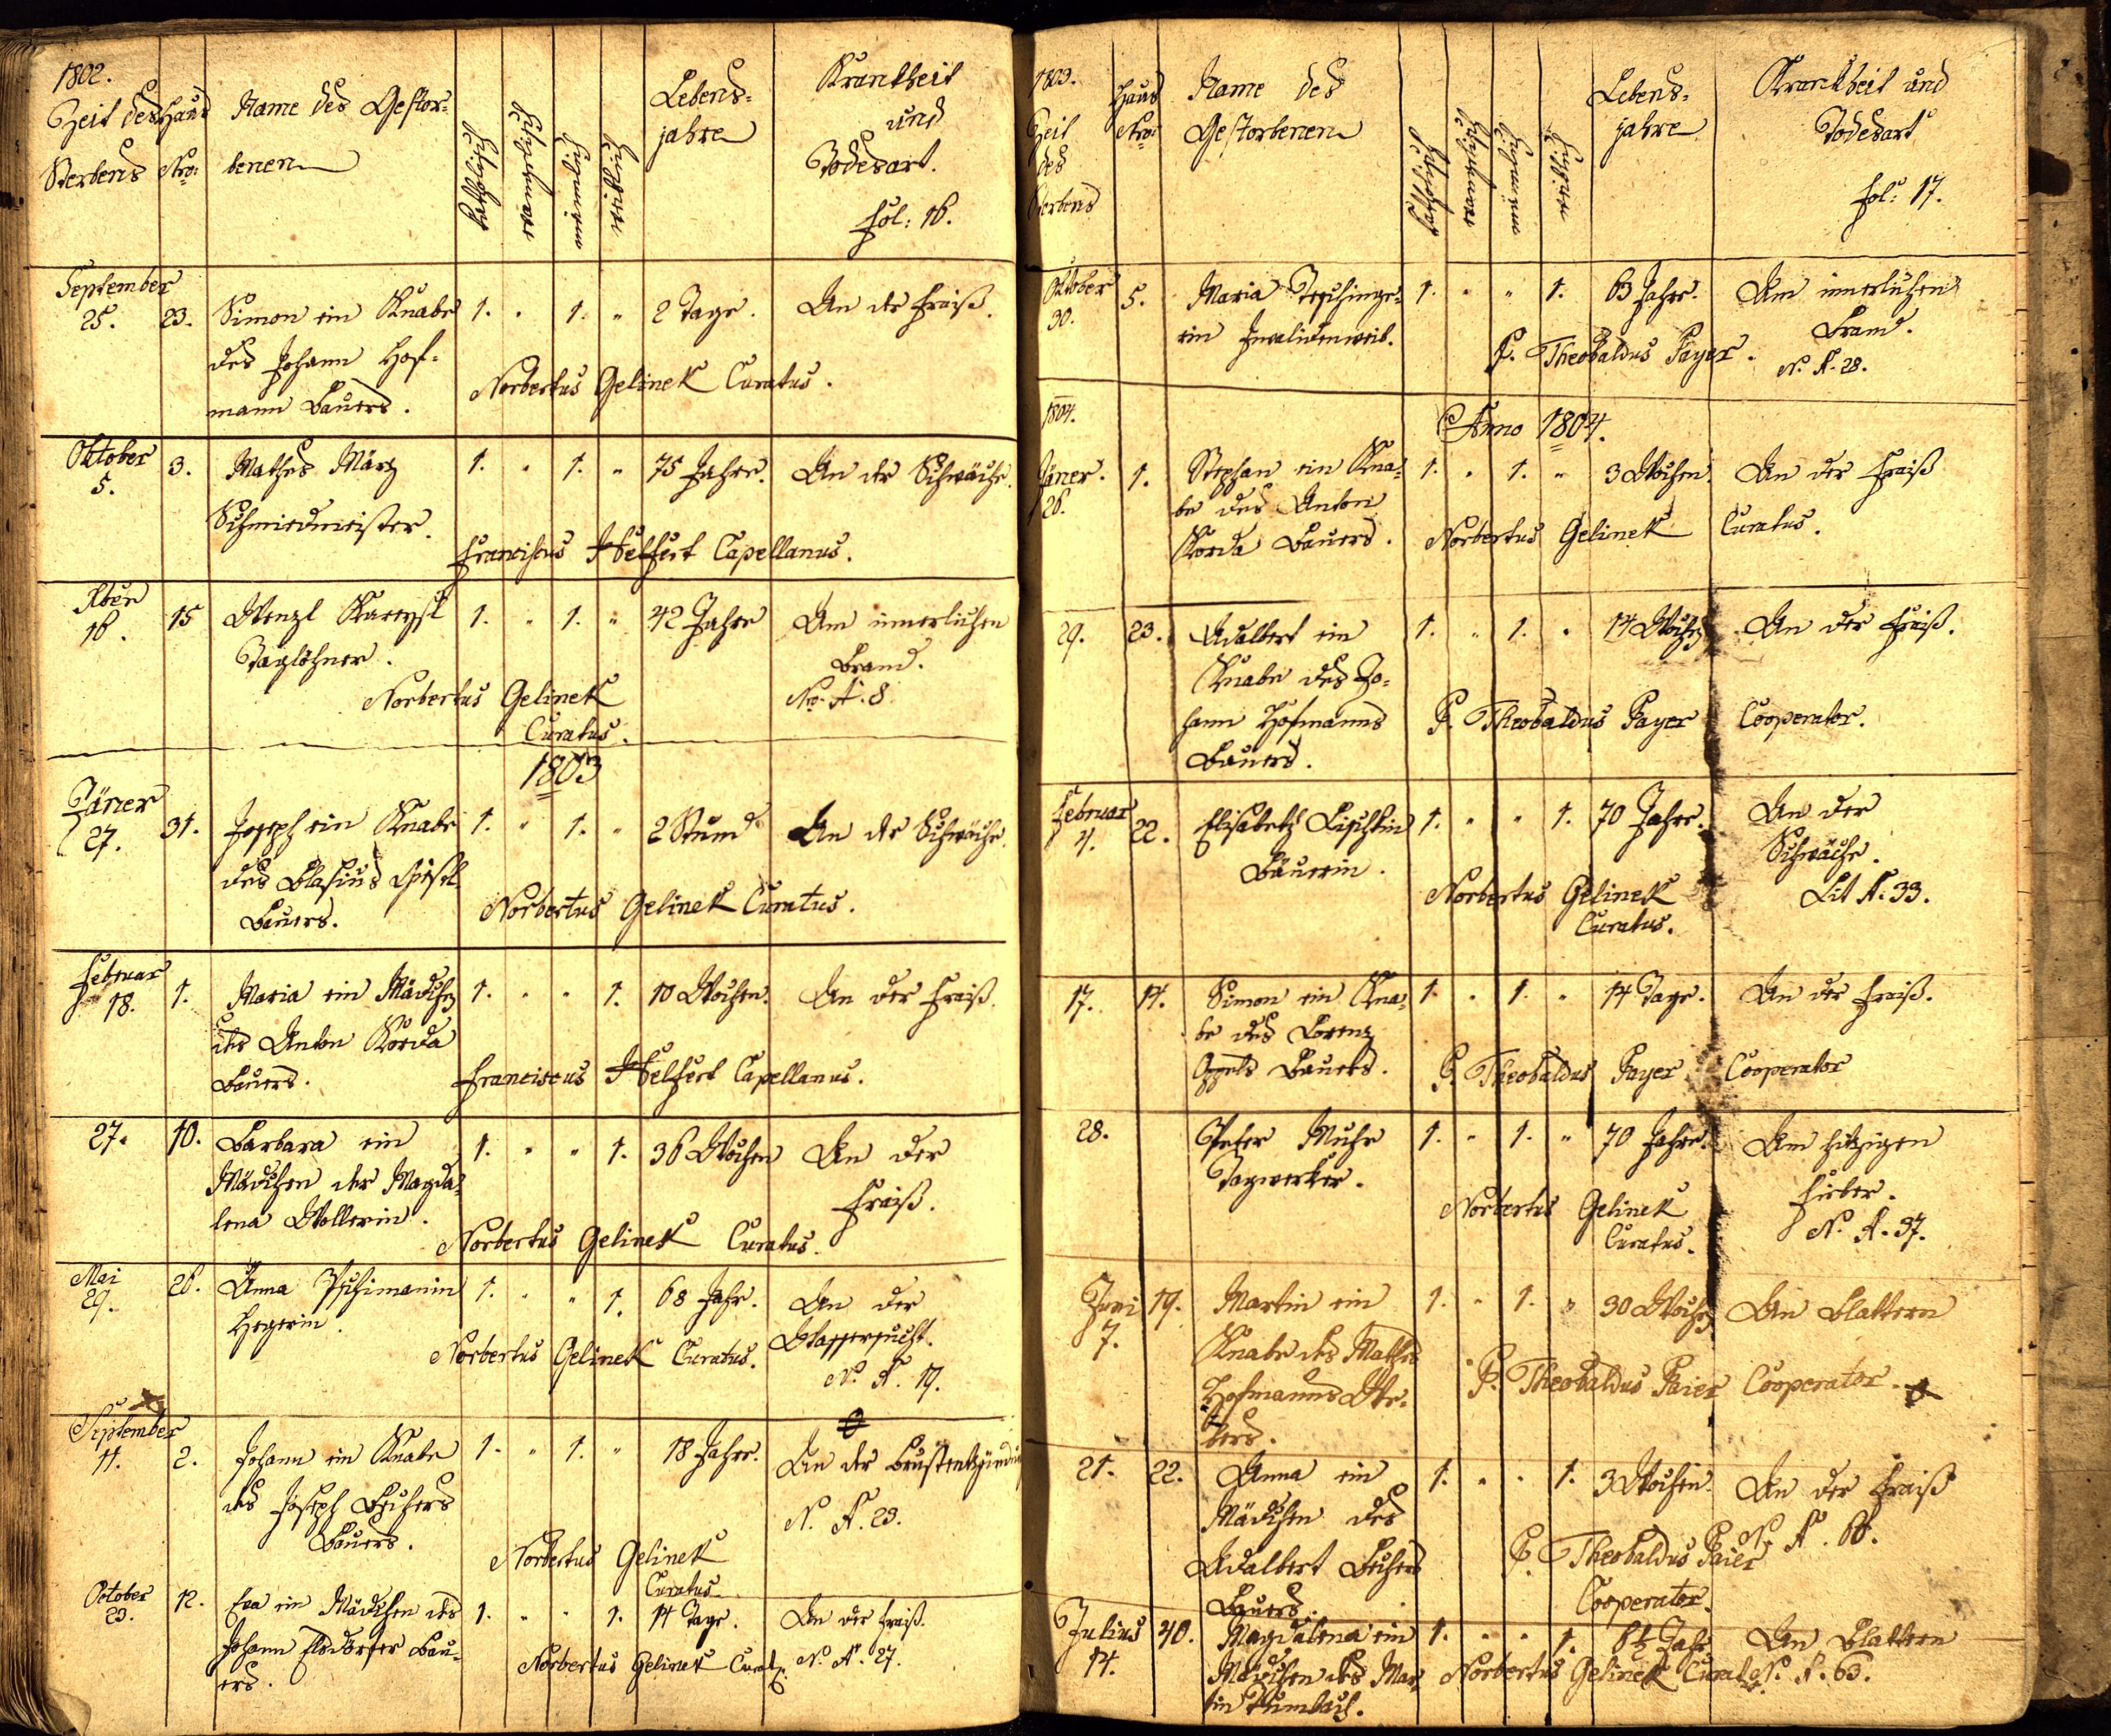 1802.
Zeit des Sterbens
Haus Nro:
Name des Gestor-
benen
Katholisch
Männlich
Weiblich
Lebens-
jahre
Krankheit
und
Todesart.
Fol: 16.
September
25. 23. Simon ein Knabe 1. " 1. " 2 Tage. An der Fraiß.
des Johann Hof-
mann Bauers.
Norbertus Gelinek Curatus.
Oktober
5. 3. Mathes März 1. " 1. " 75 Jahre. An der Schwäche.
Schmiedmeister.
Franciscus Helfert Capellanus.
16. 15 Wenzl 1. " 1. " 42 Jahre Am innerlichen
Taglöhner. Brand.
Norbertus Gelinek Nro. A. 8.
Curatus.
1803
Jäner
27. 31. Joseph ein Knabe 1. " 1. " 2 Stund An der Schwäche.
des Blasius
Bauers.
Norbertus Gelinek Curatus.
Februar
18. 1. Maria ein Mädchen 1. " " 1. 10 Wochen. An der Fraiß.
des Anton Korda
Bauers.
Franciscus Helfert Capellanus.
27. 10. Barbara ein 1. " " 1. 36 Wochen An der
Mädchen der Magda- Fraiß.
lena Wollerin.
Norbertus Gelinek Curatus.
Mai
29. 26. Anna 1. " " 1. 68 Jahr. An der
Hegerin. Wassersucht.
Norbertus Gelinek Curatus. N. A. 19.
September
11. 2. Johann ein Knabe 1. " 1. " 18 Jahre. An der Brustentzündung
des Joseph N. A. 23.
Bauers.
Norbertus Gelinek
Curatus
October
23. 12. Eva ein Mädchen des 1. " " 1. 14 Tage. An der Fraiß.
Johann Bau- N. A. 27.
ers.
Norbertus Gelinek Curat.
1803.
Zeit
des
Sterbens
Haus
Nro:
Name des
Gestorbenen
Katholisch
Männlich
Weiblich
Lebens-
jahre
Krankheit und
Todesart
Fol: 17.
Oktober
30. 5. Maria 1. " " 1. 63 Jahre. Am innerlichen
ein Invalidenweib. Brand.
P. Theobaldus Payer. N. A. 28.
1804.
Anno 1804.
Jäner.
26. 1. Stephan ein Kna- 1. " 1. " 3 Wochen. An der Fraiß
be des Anton
Korda Bauers. Norbertus Gelinek Curatus.
29. 23. Adalbert ein 1. " 1. " 14 Wochen An der Fraiß.
Knabe des Jo-
hann Hofmanns P. Theobaldus Payer Cooperator.
Bauers.
Februar
4. 22. Elisabeth 1. " " 1. 70 Jahre. An der
Bäuerin. Schwäche.
Norbertus Gelinek Lit A. 33.
Curatus.
17. 14. Simon ein Kna- 1. " 1. " 14 Tage. An der Fraiß.
be des Lorenz
Bauers. P. Theobaldus Payer Cooperator
28. Peter Muhr 1. " 1. " 70 Jahre. Am hitzigen
Tagwerker. Fieber.
Norbertus Gelinek N. A. 37.
Curatus.
Juni
7. 19. Martin ein 1. " 1. " 30 Wochen An Blattern
Knabe des Mathes
Hofmanns We- P. Theobaldus Paier Cooperator.
bers.
21. 22. Anna ein 1. " " 1. 3 Wochen. An der Fraiß
Mädchen des
Adalbert P. Theobaldus Paier
Bauers. Cooperator.
Julius
14. 40. Magdalena ein 1. " " 1. 6½ Jahr An Blattern
Mädchen des Mar- Norbertus Gelinek Curat. N. A. 63.
tin